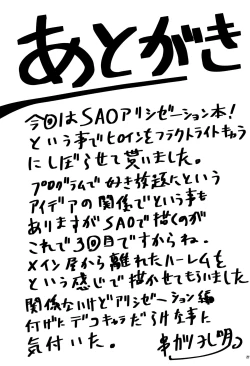 あとがき
今回はSAOアリシゼーション本!
という事でヒロインをフラクトライトキャラ
にしぼらせて貰いました。
プログラムで好き放題にという
アイデアの関係でという事も
ありますがSAOで描くのが
これで3回目ですからね。
メイン存から離れたハーレムを
という感じで描かせてもらいました
関係ないけどアリシゼーション編
デコキャラだらけな事に
気付いた。